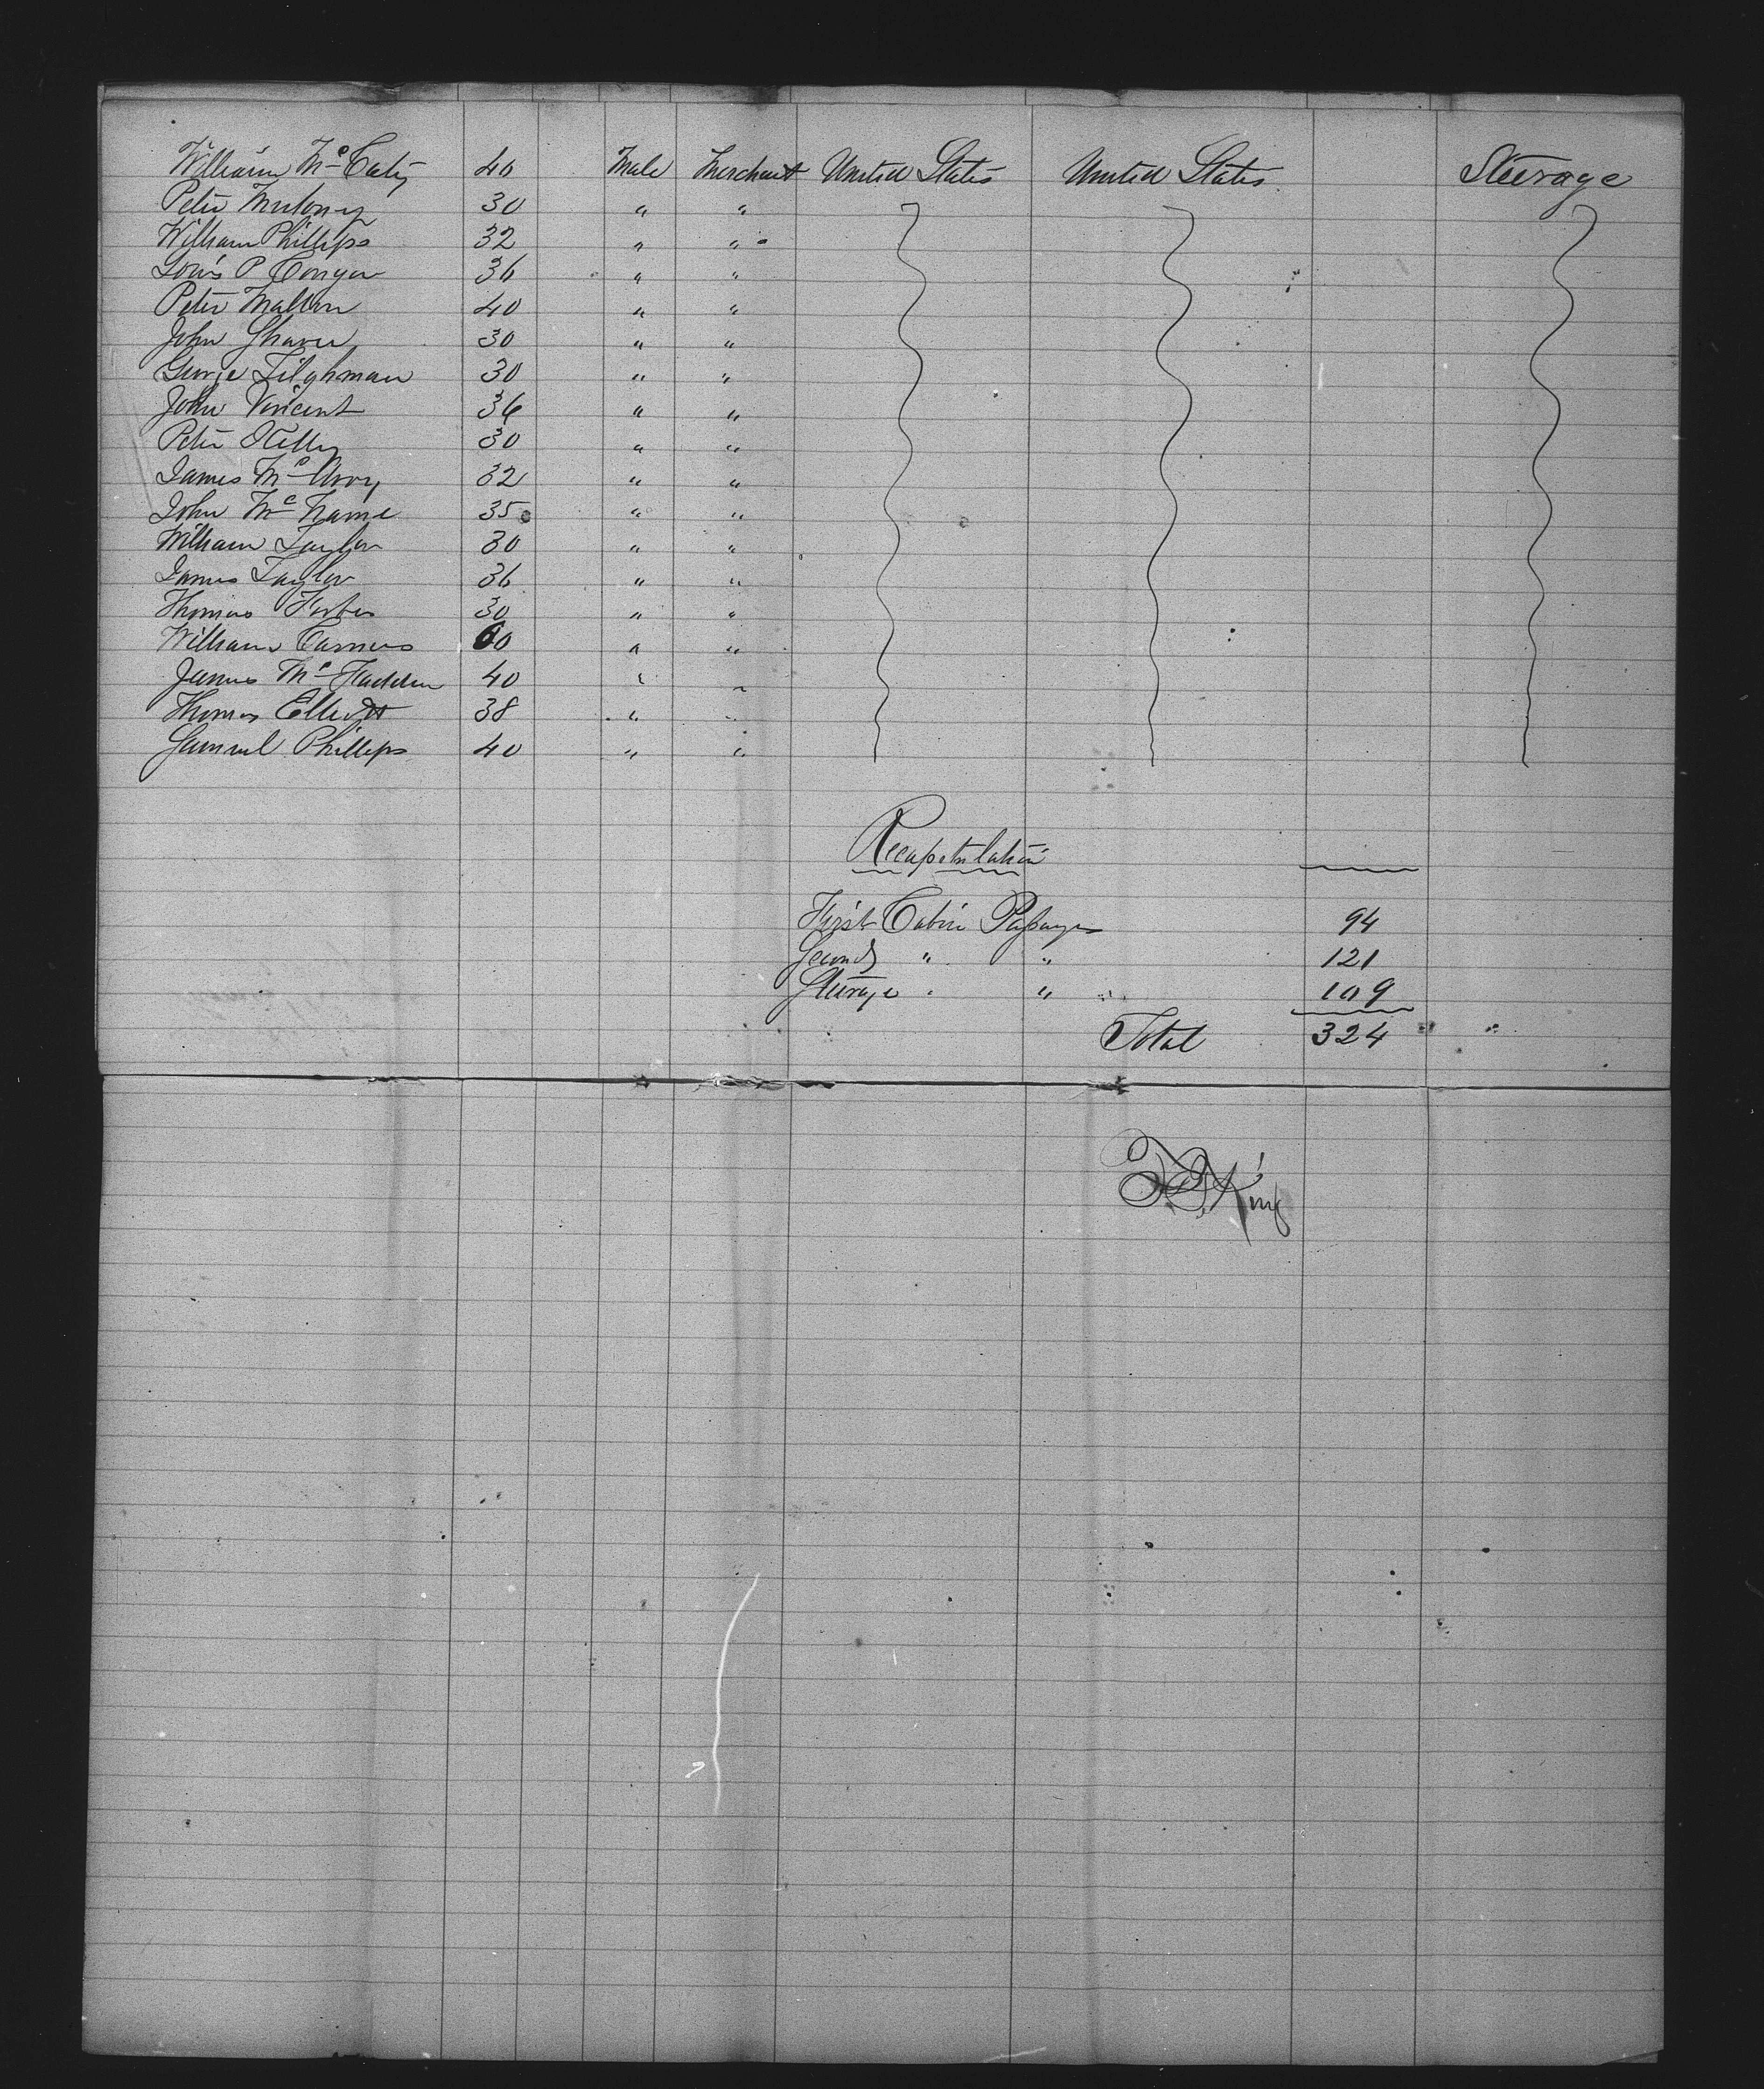 William Mc Caty 40 Male Merchant United States United States Steerage
Peter Muloney 30 " "
William Phillips 32 " "
Louis P Conger 36 " "
Peter Mallon 40 " "
John Shaver 30 " "
George Tilghman 30 " "
John Vincent 36 " "
Peter 30 " "
James Mc Avoy 32 " "
John Mc Name 35 " "
William Taylor 30 " "
James Taylor 36 " "
Thomas Forbes 30 " "
William 60 " "
James Mc Fadden 40 " "
Thomas Elliott 38 " "
Samuel Phillips 40 " "
Recapitulation
First Cabin Passengers 94
Second " " 121
Steerage " " 109
Total 324 "
King